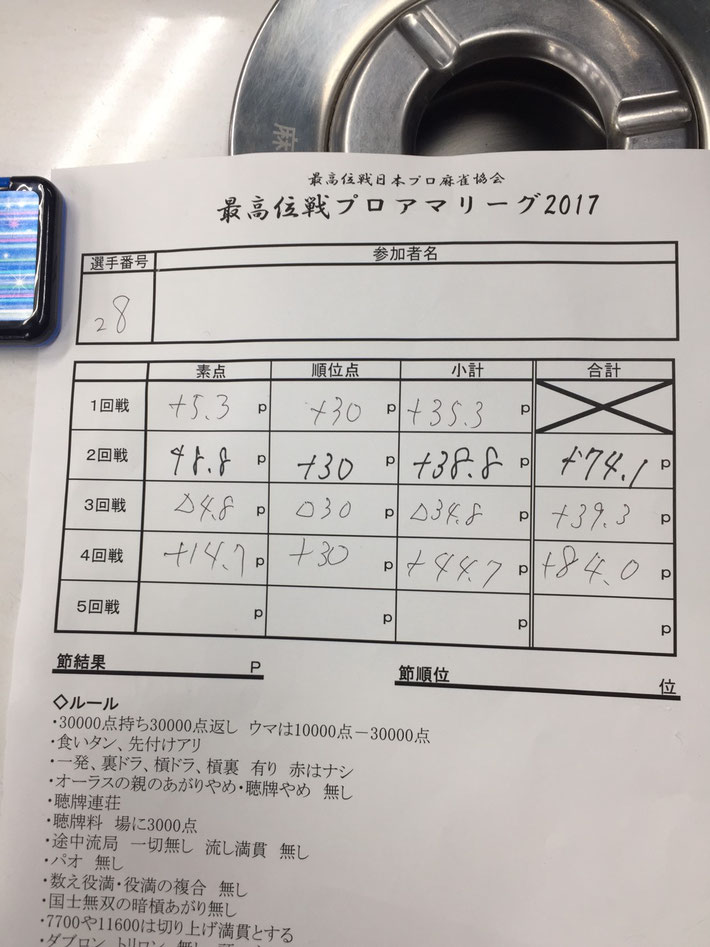 麻
最高位戦日本プロ麻雀協会
最高位戦プロアマリーグ2017
選手番号 参加者名
28
素点 順位点 小計 合計
1回戦 +5.3 P +30 P +35.3 P
2回戦 +8.8 P +30 P +38.8 P +74.1 P
3回戦 △4.8 P △30 P △34.8 P +39.3 P
4回戦 +14.7 P +30 P +44.7 P +84.0 P
5回戦 P P P P
節結果 P 節順位 位
◇ルール
・30000点持ち30000点返し ウマは10000点－30000点
・食いタン、先付けアリ
・一発、裏ドラ、槓ドラ、槓裏 有り 赤はナシ
・オーラスの親のあがりやめ・聴牌やめ 無し
・聴牌連荘
・聴牌料 場に3000点
・途中流局 一切無し 流し満貫 無し
・パオ 無し
・数え役満・役満の複合 無し
・国士無双の暗槓あがり無し
・7700や11600は切り上げ満貫とする
・ダブロン、トリロン 無し